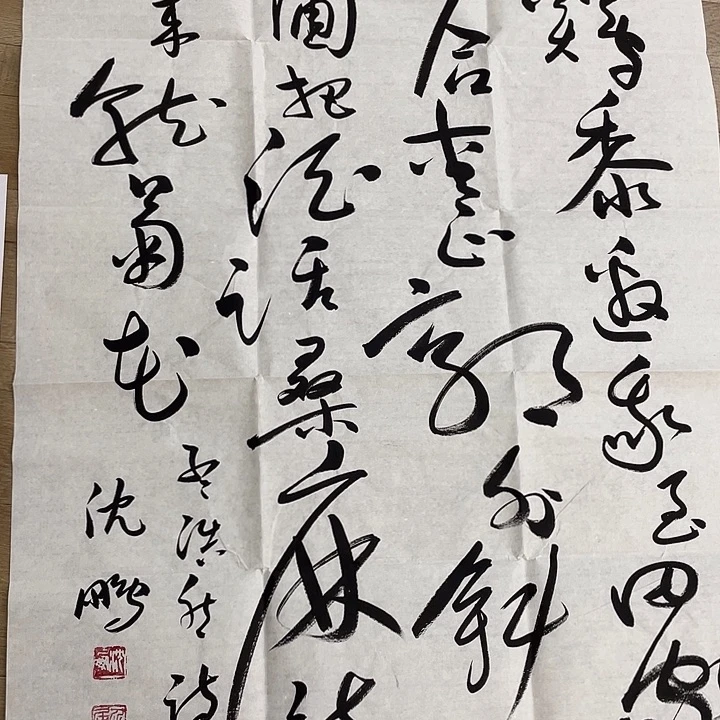 雞黍邀我至田家
合青山郭外斜
圃把酒話桑麻待
來就菊花
孟浩然詩
沈鵬